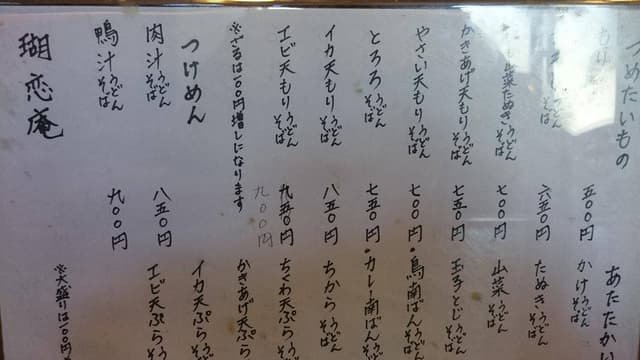 つめたいもの
もり うどん そば 五〇〇円
うどん そば 六五〇円
山菜たぬき うどん そば 七〇〇円
かきあげ天もり うどん そば 七五〇円
やさい天もり うどん そば 七〇〇円
とろろ うどん そば 七五〇円
イカ天もり うどん そば 八五〇円
エビ天もり うどん そば 九五〇円
九〇〇円
※ざるは一〇〇円増しになります
つけめん
肉汁 うどん そば 八五〇円
鴨汁 うどん そば 九〇〇円
瑚恋庵
あたたかい
かけ うどん そば
たぬき うどん そば
山菜 うどん そば
玉子とじ うどん そば
・鳥南ばん うどん そば
・カレー南ばん うどん そば
ちから うどん そば
ちくわ天ぷら うどん そば
かきあげ天ぷら
イカ天ぷら
エビ天ぷら
※大盛りは一〇〇円